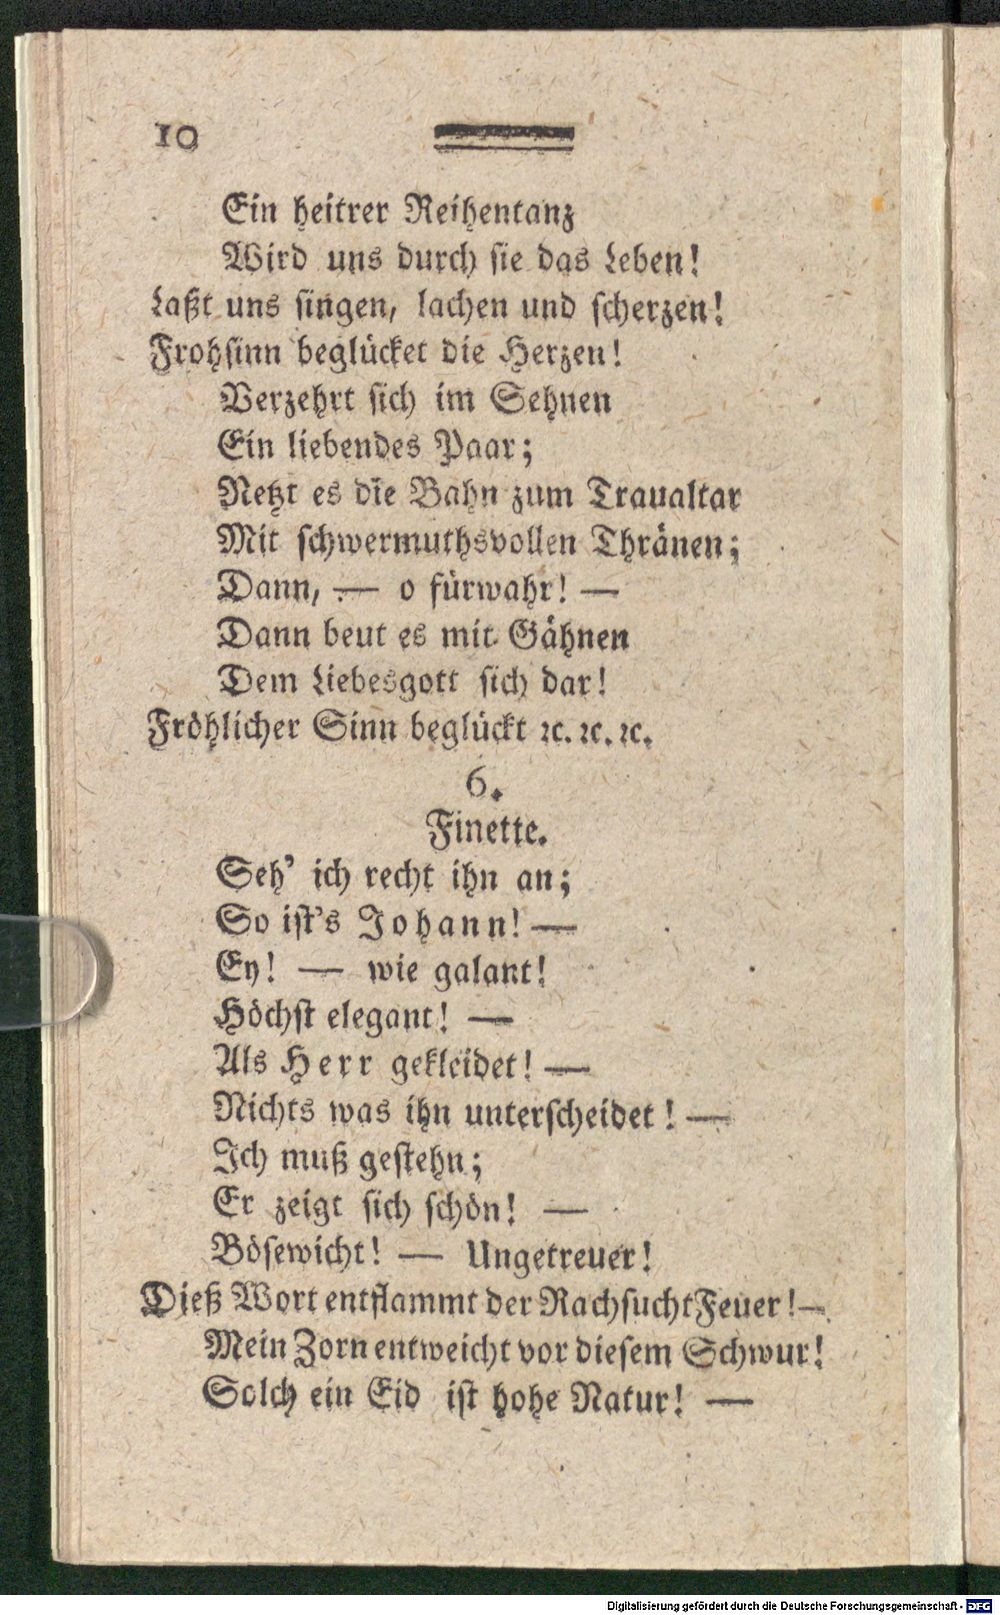 10
Ein heitrer Reihentanz
Wird uns durch sie das Leben!
Laßt uns singen, lachen und scherzen!
Frohsinn beglücket die Herzen!
Verzehrt sich im Sehnen
Ein liebendes Paar;
Netzt es die Bahn zum Traualtar
Mit schwermuthsvollen Thränen;
Dann, — o fürwahr! —
Dann beut es mit Gähnen
Dem Liebesgott sich dar!
Fröhlicher Sinn beglückt ꝛc. ꝛc. ꝛc.
6.
Finette.
Seh' ich recht ihn an;
So ist's Johann! —
Ey! — wie galant!
Höchst elegant! —
Als Herr gekleidet! —
Nichts was ihn unterscheidet! —
Ich muß gestehn;
Er zeigt sich schön! —
Bösewicht! — Ungetreuer!
Dieß Wort entflammt der Rachsucht Feuer! —
Mein Zorn entweicht vor diesem Schwur!
Solch ein Eid ist hohe Natur! —
Digitalisierung gefördert durch die Deutsche Forschungsgemeinschaft - DFG